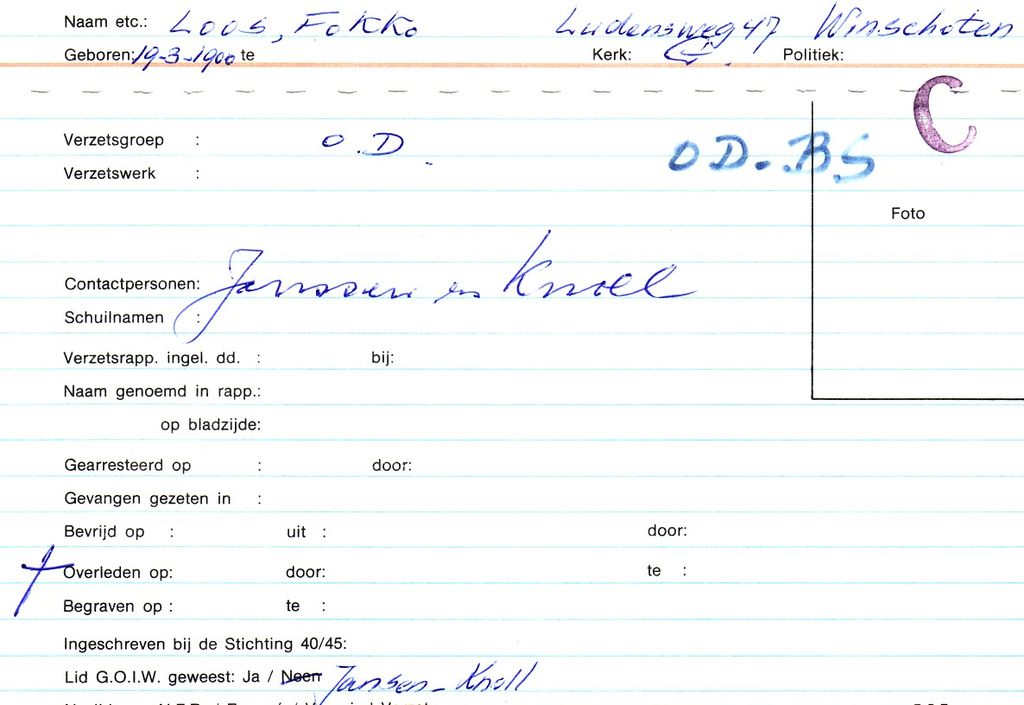 Naam etc.: Loos, Fokko Ludensweg 47 Winschoten
Geboren: 19-3-1900 te Kerk: Politiek:
C
Verzetsgroep : O.D. OD.-.BS
Verzetswerk :
Foto
Contactpersonen: Janssen en Knoll
Schuilnamen :
Verzetsrapp. ingel. dd. : bij:
Naam genoemd in rapp.:
op bladzijde:
Gearresteerd op : door:
Gevangen gezeten in :
Bevrijd op : uit : door:
Overleden op: door: te :
Begraven op : te :
Ingeschreven bij de Stichting 40/45:
Lid G.O.I.W. geweest: Ja / Neen Jansen - Knoll